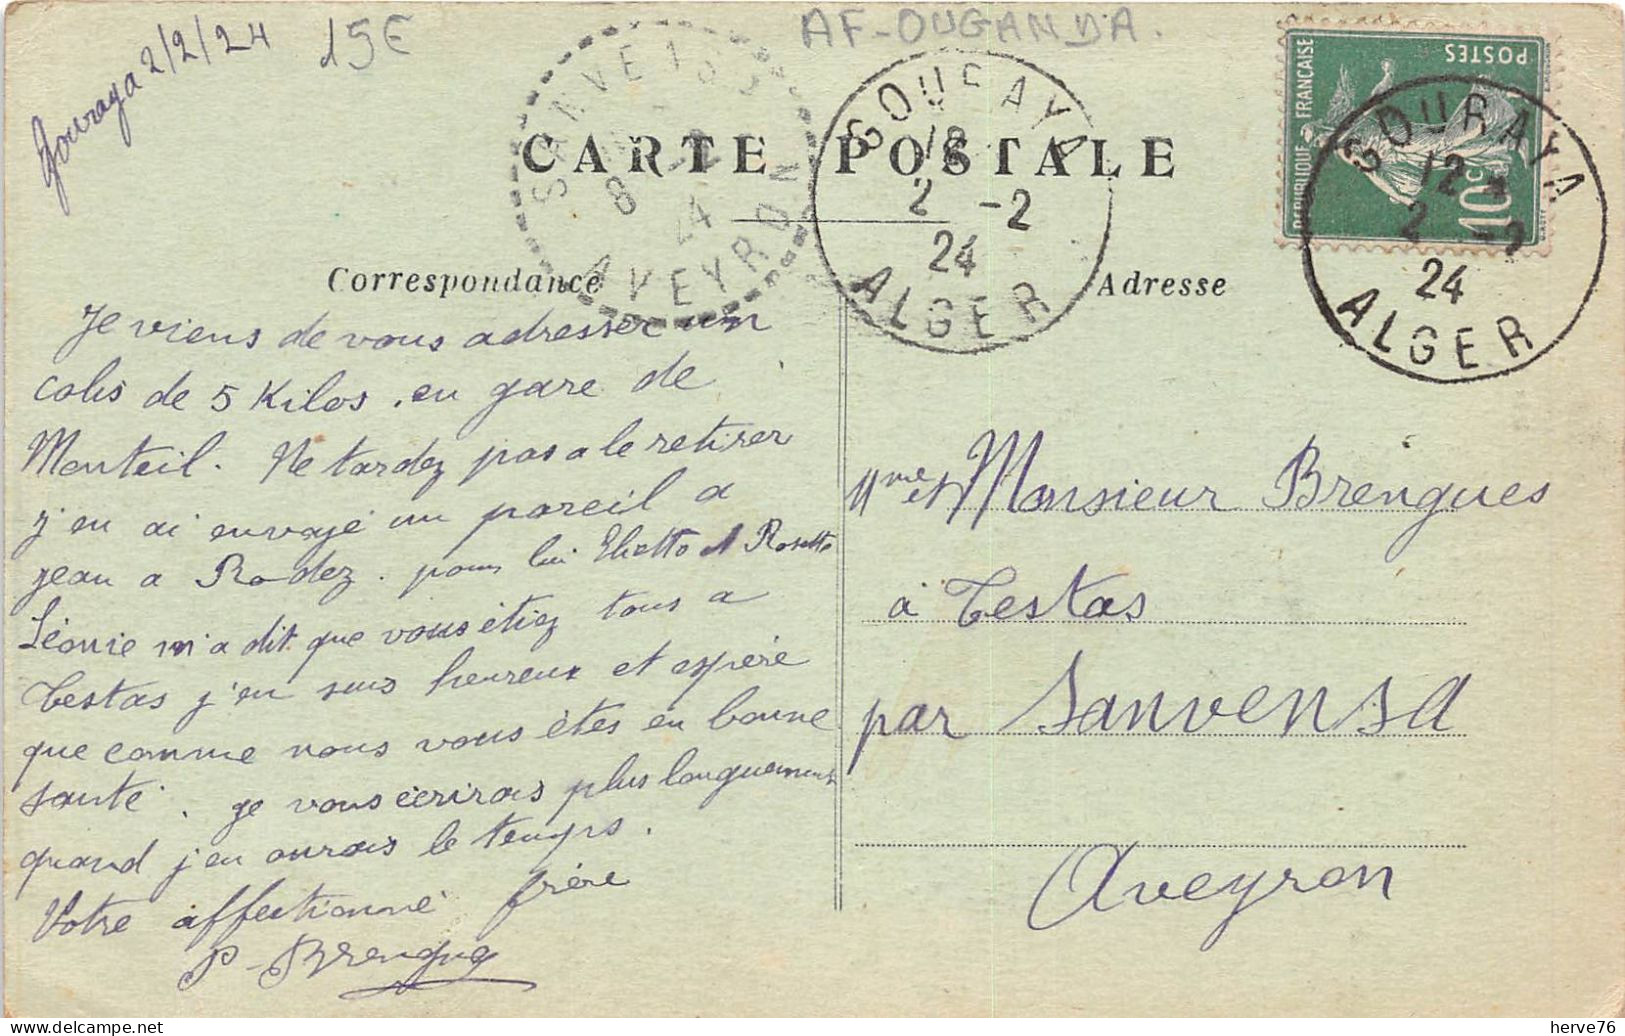 Gouraya 2/2/24
15€
AF-OUGANDA.
CARTE POSTALE
Correspondance
Adresse
SANVENSA
8 -2
24
AVEYRON
GOURAYA
12
2 -2
24
ALGER
POSTES
REPUBLIQUE FRANÇAISE
10c
GOURAYA
12
2 -2
24
ALGER
Je viens de vous adresser un
colis de 5 Kilos . en gare de
Monteil. Ne tardez pas a le retirer
j'en ai envoyé un pareil a
jean a Rodez. pour lui et Rosette
Léonie m'a dit que vous étiez tous a
Testas j'en suis heureux et espère
que comme nous vous êtes en bonne
santé. je vous écrirais plus longuement
quand j'en aurais le temps.
Votre affectionné frère
P. Brengues
Mme et Monsieur Brengues
à Testas
par Sanvensa
Aveyron
herve76